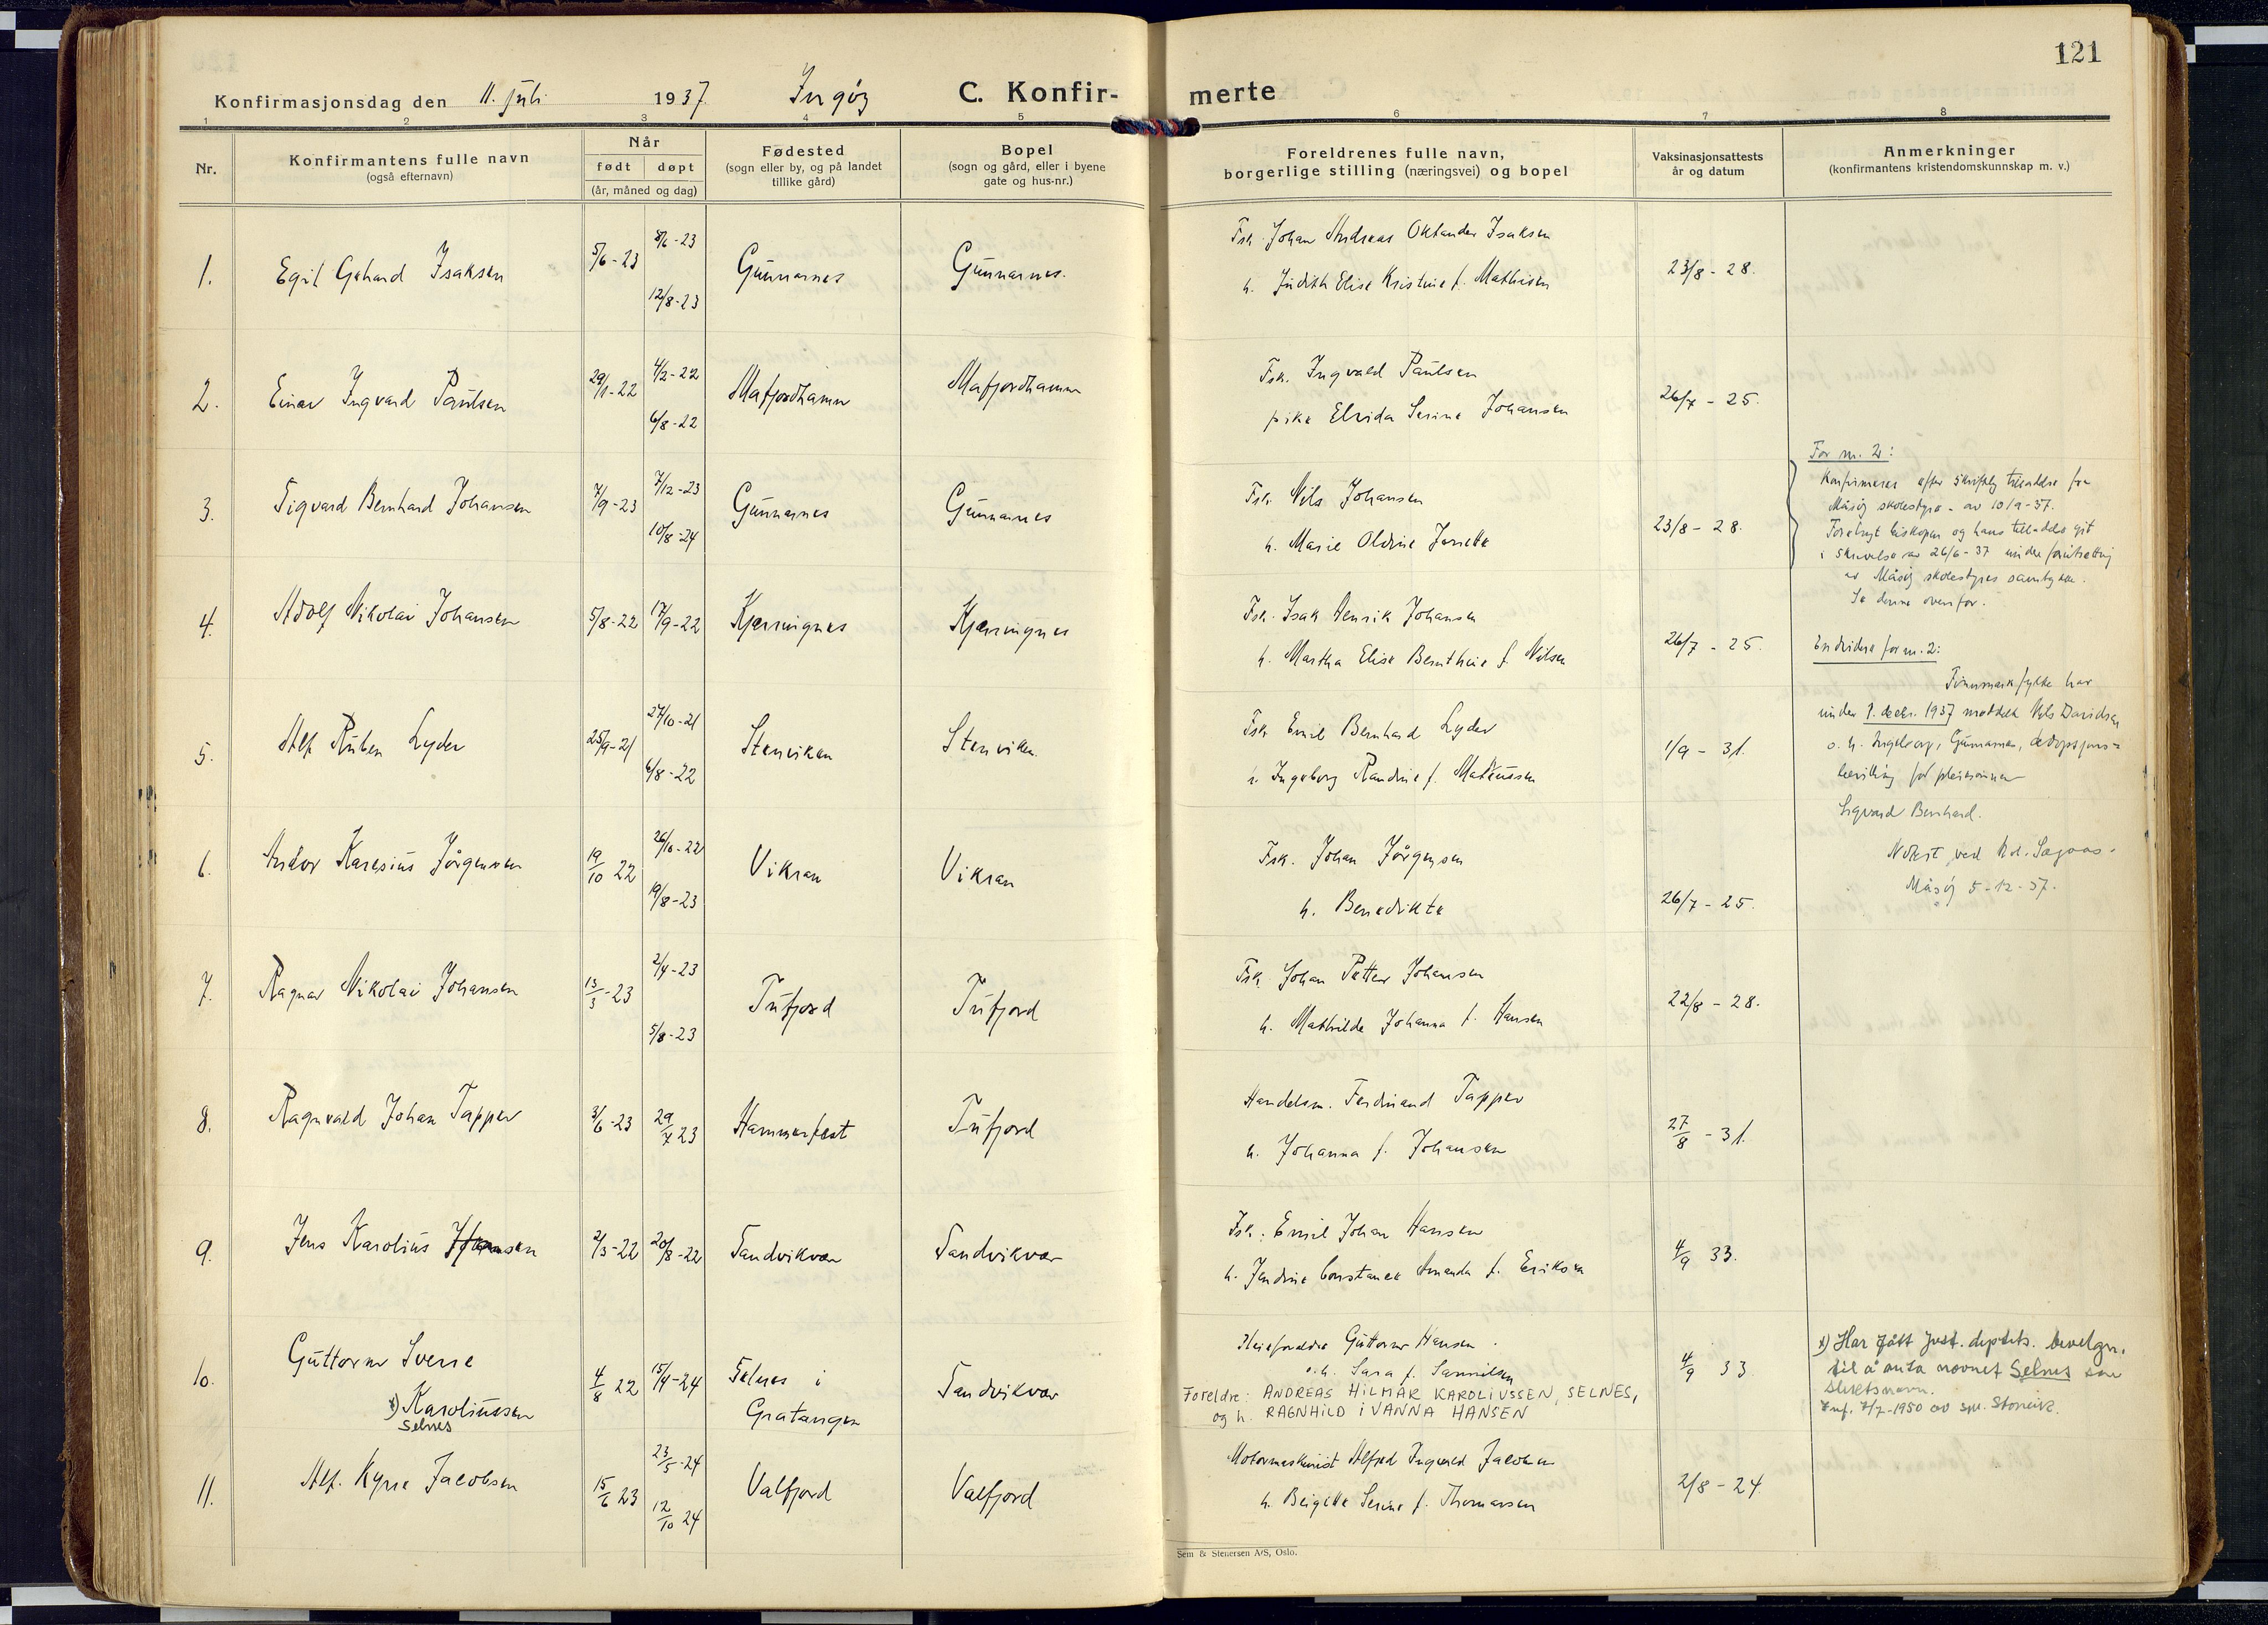 121
Konfirmasjonsdag den 11. juli 1937 Ingøy C. Konfir- merte
1 2 3 4 5 6 7 8
Nr. Konfirmantens fulle navn (også efternavn) Når født døpt (år, måned og dag) Fødested (sogn eller by, og på landet tillike gård) Bopel (sogn og gård, eller i byene gate og hus-nr.) Foreldrenes fulle navn, borgerlige stilling (næringsvei) og bopel Vaksinasjonsattests år og datum Anmerkninger (konfirmantens kristendomskunnskap m. v.)
1. Egil Gehard Isaksen 5/6-23 8/6-23 12/8-23 Gunnarnes Gunnarnes. Fsk. Johan Andreas Oktander Isaksen
h. Judith Elise Kristine f. Mathisen 23/8-28.
2. Einar Ingvard Paulsen 29/1-22 4/2-22 6/8-22 Mafjordhamn Mafjordhamn Fsk. Ingvald Paulsen
pike Elvida Serine Johansen 26/7-25.
3. Sigvard Bernhard Johansen 7/9-23 7/12-23 10/8-24 Gunnarnes Gunnarnes Fsk. Nils Johansen
h. Marie Oldine 23/8-28.
For nr. 2:
Konfirmeres efter skriftlig tilladelse fra
Måsøy skolestyre av 10/9-37.
Forelagt biskopen og hans tilladelse git
i skrivelse av 26/6-37 under forutsetning
av Måsøy skolestyres samtykke.
Se denne ovenfor.
4. Adolf Nikolai Johansen 5/8-22 17/9-22 Kjerringnes Kjerringnes Fsk. Isak Henrik Johansen
h. Martha Elise Bernthine f. Nilsen 26/7-25.
Endvidere for nr. 2:
Finnmark fylke har
under 1. decbr. 1937 meddelt Nils Davidsen
o. h. Ingeborg, Gunnarnes, adopsjons=
bevilling for pleiesønnen
Sigvard Bernhard.
Notert ved
Måsøy 5-12-37.
5. Alf Ruben Lyder 25/9-21 27/10-21 6/8-22 Stenviken Stenviken Fsk. Emil Bernhard Lyder
h. Ingeborg Randine f. Mateussen 1/9-31.
6. Andor Karesius Jørgensen 19/10 22 26/10-22 19/8-23 Vikran Vikran Fsk. Johan Jørgensen
h. Benedikte 26/7-25.
7. Ragnar Nikolai Johansen 13/3-23 2/4-23 5/8-23 Tufjord Tufjord Fsk. Johan Petter Johansen
h. Mathilde Johanna f. Hansen 22/8-28.
8. Ragnvald Johan Tapper 3/6-23 29/7 23 Hammerfest Tufjord Handelsm. Ferdinand Tapper
h. Johanna f. Johansen 27/8-31.
9. Jens Karolius Hansen 2/3-22 20/8-22 Sandvikvær Sandvikvær Fsk. Emil Johan Hansen
h. Jendine Constance Amanda f. Eriksen 4/9 33.
10. Guttorm Sverre
x) Karoliussen
Selnes
4/8 22 15/4-24 Selnes i
Gratangen
Sandvikvær
Pleieforeldre Guttorm Hansen
o.h. Sara f. Samuelsen
Foreldre: ANDREAS HILMAR KAROLIUSSEN, SELNES,
og h. RAGNHILD IVANNA HANSEN
4/9 33
x) Har fått Just. deptets. bevelgn.
til å anta navnet Selnes som
slektsnavn.
Innf. 7/7-1950 av spr. Storvik.
11. Alf. Kyrre Jacobsen 15/6 23 23/5-24 12/10 24 Valfjord Valfjord Motormaskinist Alfred Ingvald Jacobsen
h. Beigitte Serine f. Thomassen 2/8-24
Sem & Stenersen A/S, Oslo.